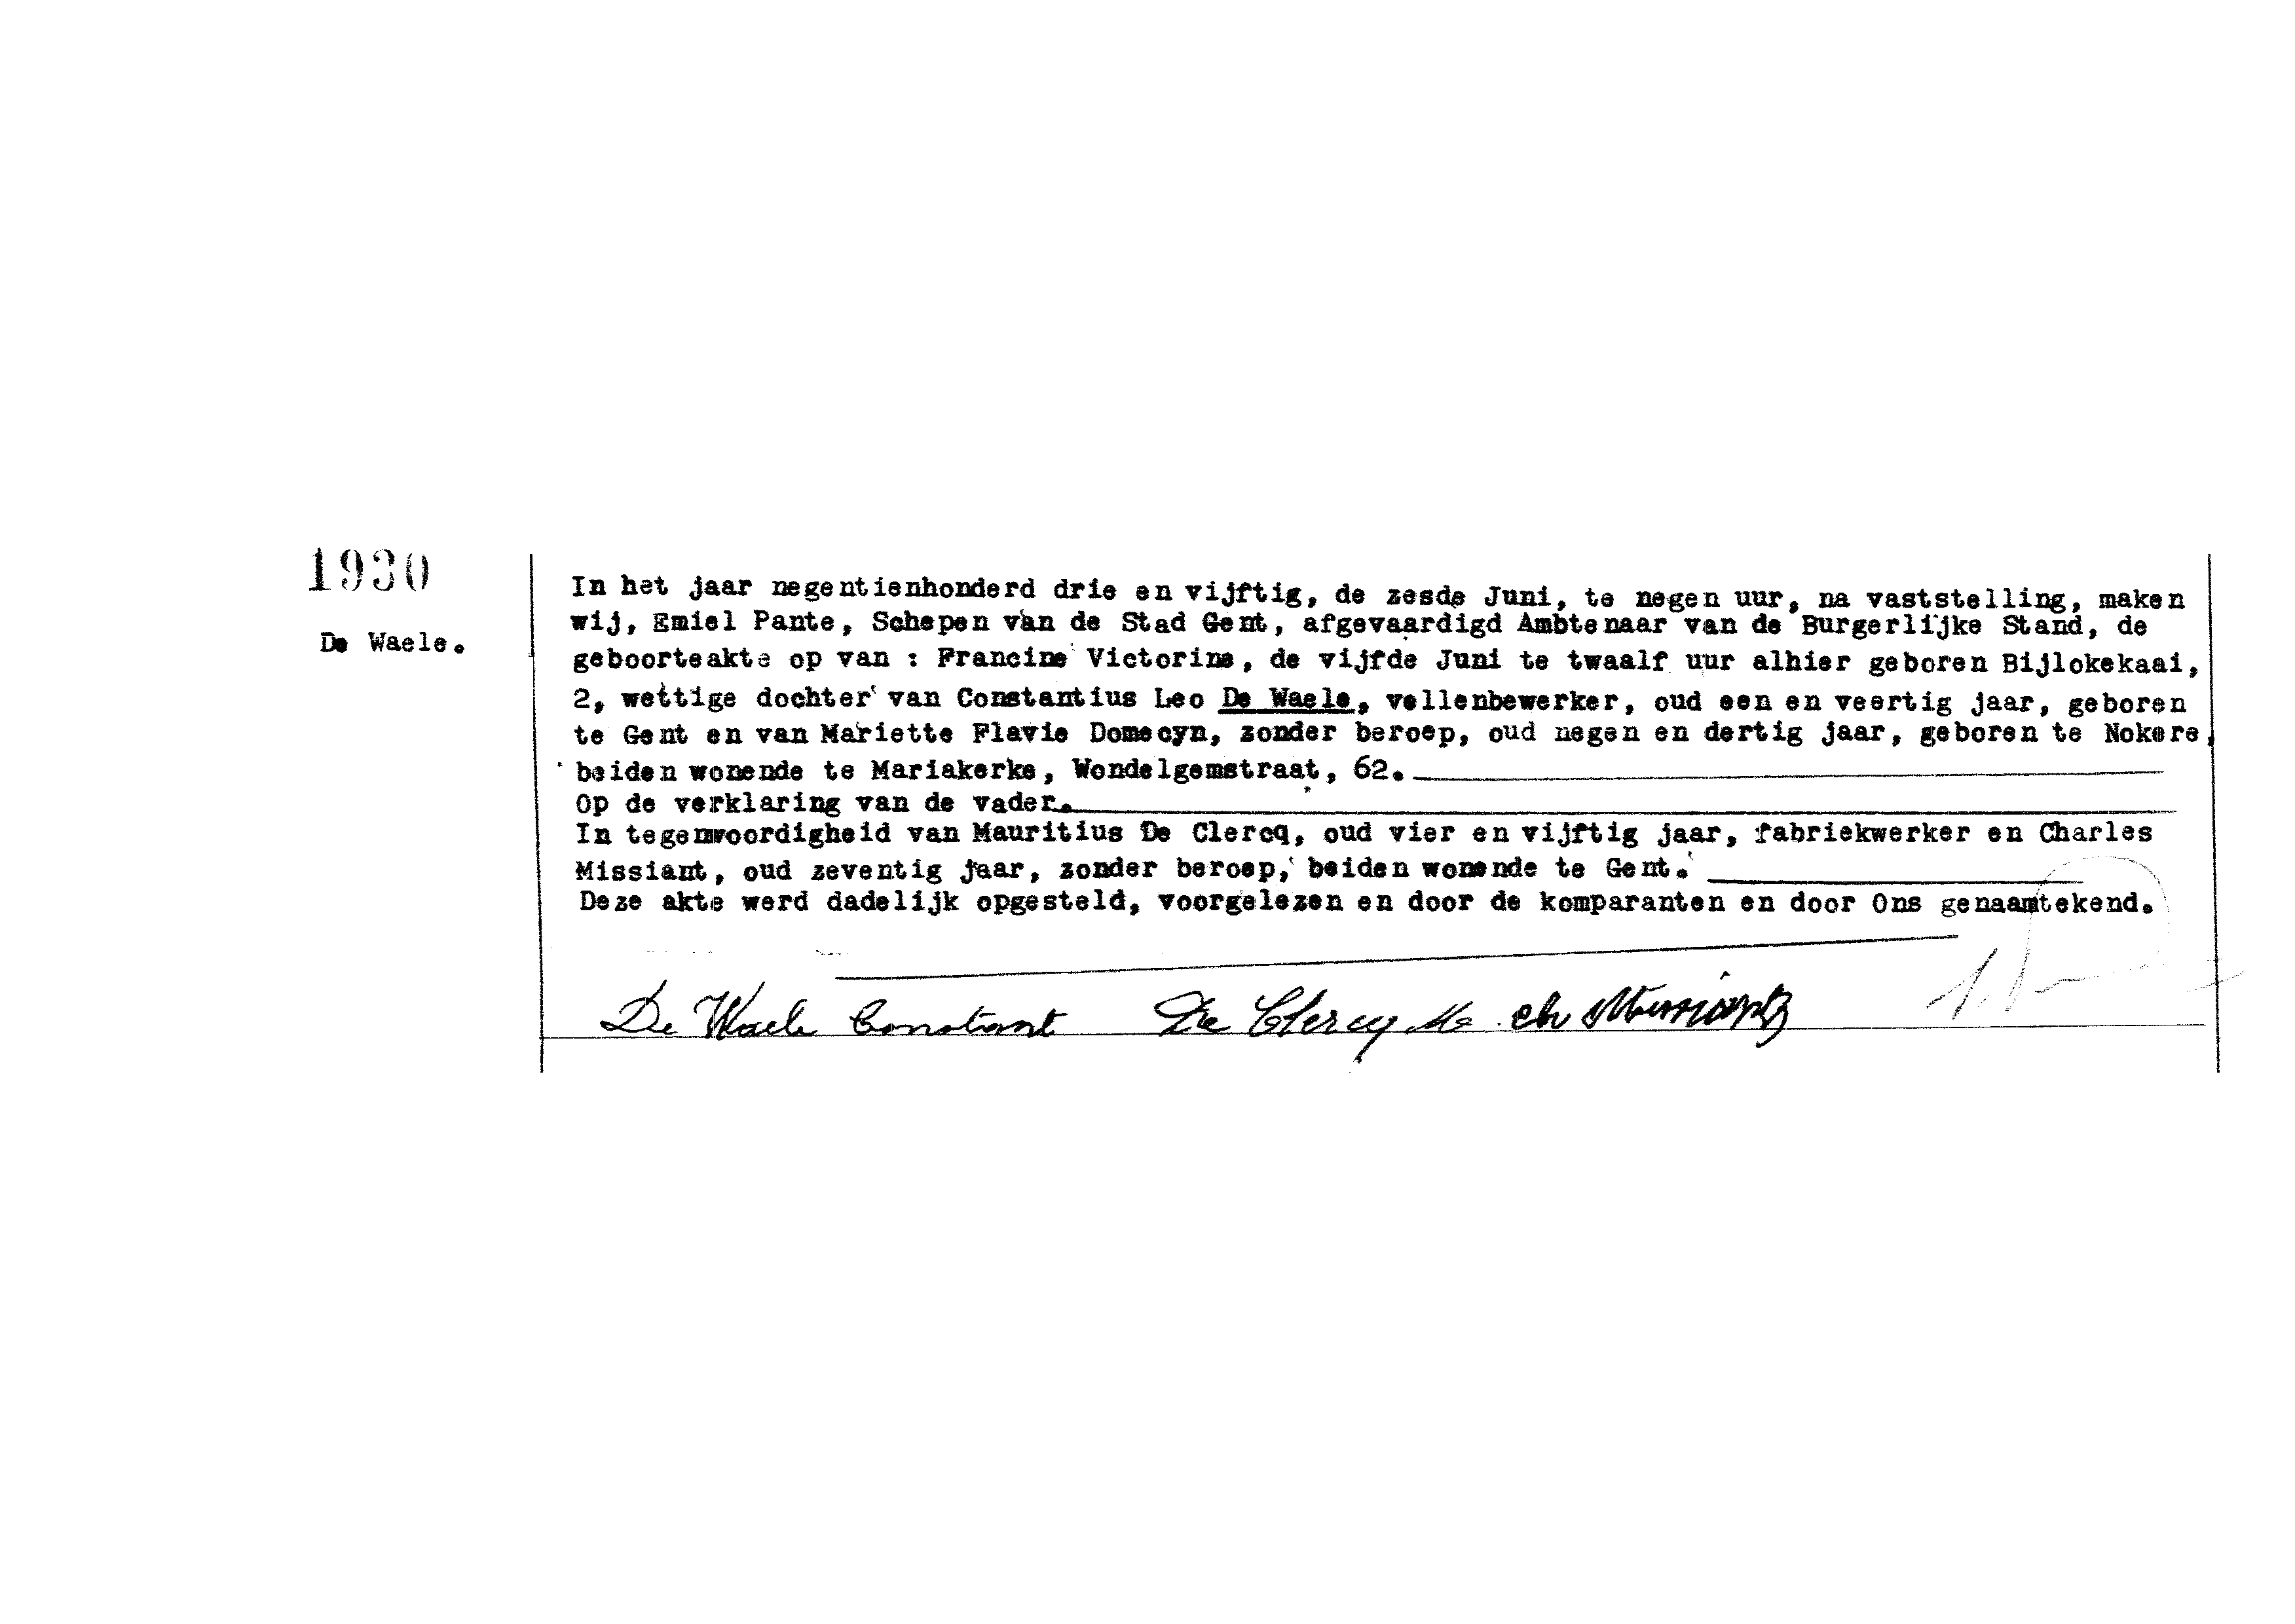 1930
De Waele.
In het jaar negentienhonderd drie en vijftig, de zesde Juni, te negen uur, na vaststelling, maken
wij, Emiel Pante, Schepen van de Stad Gent, afgevaardigd Ambtenaar van de Burgerlijke Stand, de
geboorteakte op van : Francine Victorine, de vijfde Juni te twaalf uur alhier geboren Bijlokekaai,
2, wettige dochter van Constantius Leo De Waele, vellenbewerker, oud een en veertig jaar, geboren
te Gent en van Mariette Flavie Domecyn, zonder beroep, oud negen en dertig jaar, geboren te Nokere,
beiden wonende te Mariakerke, Wondelgemstraat, 62.
Op de verklaring van de vader.
In tegenwoordigheid van Mauritius De Clercq, oud vier en vijftig jaar, fabriekwerker en Charles
Missiant, oud zeventig jaar, zonder beroep, beiden wonende te Gent.
Deze akte werd dadelijk opgesteld, voorgelezen en door de komparanten en door Ons genaamtekend.
De Waele Constant De Clercq M. ch Missiant